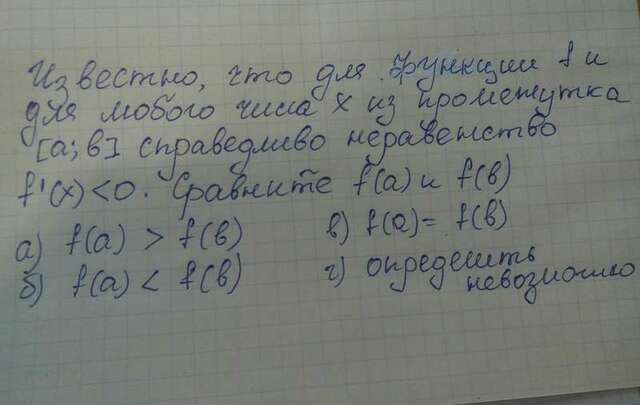 Известно, что для функции f и
для любого числа x из промежутка
[a; b] справедливо неравенство
f'(x) < 0. Сравните f(a) и f(b)
а) f(a) > f(b) в) f(a) = f(b)
б) f(a) < f(b) г) определить
невозможно